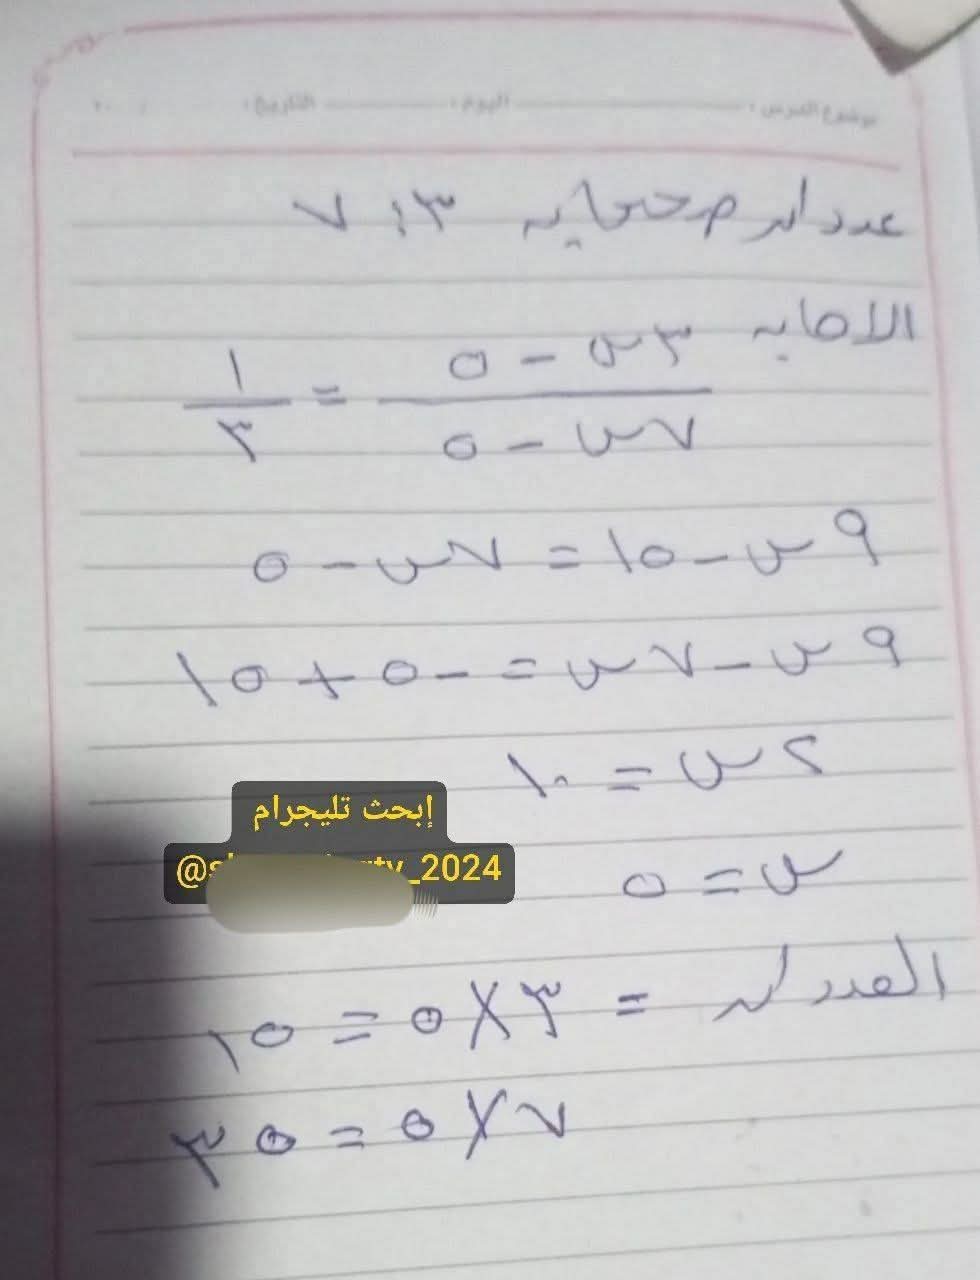 موضوع الدرس : اليوم : التاريخ :
عددان صحيحان ٣ : ٧
الاجابه
٣س - ٥ / ٧س - ٥ = ١ / ٣
٩س - ١٥ = ٧س - ٥
٩س - ٧س = -٥ + ١٥
٢س = ١٠
إبحث تليجرام
_2024
س = ٥
العددان = ٣ × ٥ = ١٥
٧ × ٥ = ٣٥